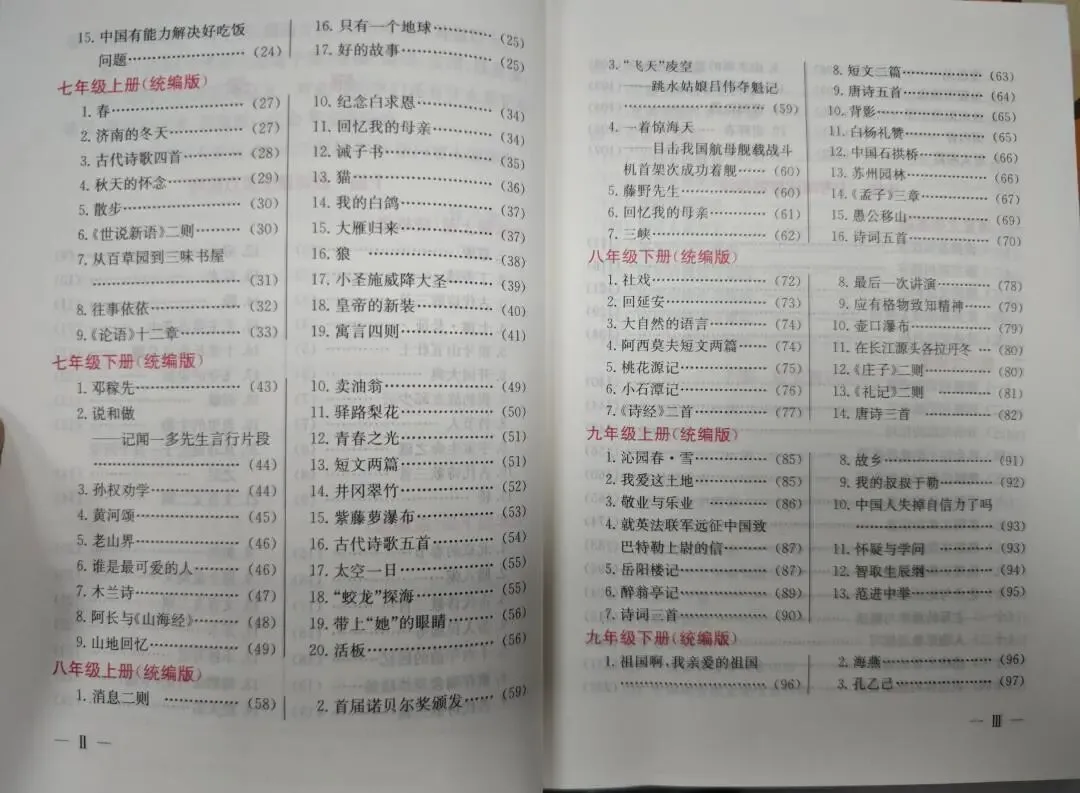 15. 中国有能力解决好吃饭
问题…………………… (24)
16. 只有一个地球………… (25)
17. 好的故事……………… (25)
七年级上册(统编版)
1. 春…………………… (27)
2. 济南的冬天…………… (27)
3. 古代诗歌四首………… (28)
4. 秋天的怀念…………… (29)
5. 散步…………………… (30)
6.《世说新语》二则……… (30)
7. 从百草园到三味书屋
…………………………… (31)
8. 往事依依……………… (32)
9.《论语》十二章………… (33)
10. 纪念白求恩…………… (34)
11. 回忆我的母亲………… (34)
12. 诫子书………………… (35)
13. 猫……………………… (36)
14. 我的白鸽……………… (37)
15. 大雁归来……………… (37)
16. 狼 …………………… (38)
17. 小圣施威降大圣……… (39)
18. 皇帝的新装…………… (40)
19. 寓言四则……………… (41)
七年级下册(统编版)
1. 邓稼先………………… (43)
2. 说和做
——记闻一多先生言行片段
…………………………… (44)
3. 孙权劝学……………… (44)
4. 黄河颂………………… (45)
5. 老山界………………… (46)
6. 谁是最可爱的人……… (46)
7. 木兰诗………………… (47)
8. 阿长与《山海经》……… (48)
9. 山地回忆……………… (49)
10. 卖油翁………………… (49)
11. 驿路梨花……………… (50)
12. 青春之光……………… (51)
13. 短文两篇……………… (51)
14. 井冈翠竹……………… (52)
15. 紫藤萝瀑布…………… (53)
16. 古代诗歌五首………… (54)
17. 太空一日……………… (55)
18. “蛟龙”探海…………… (55)
19. 带上“她”的眼睛……… (56)
20. 活板…………………… (56)
八年级上册(统编版)
1. 消息二则 …………… (58)
2. 首届诺贝尔奖颁发…… (59)
— Ⅱ —
3. “飞天”凌空
——跳水姑娘吕伟夺魁记
…………………………… (59)
4. 一着惊海天
——目击我国航母舰载战斗
机首架次成功着舰…… (60)
5. 藤野先生……………… (60)
6. 回忆我的母亲………… (61)
7. 三峡…………………… (62)
8. 短文二篇……………… (63)
9. 唐诗五首……………… (64)
10. 背影…………………… (65)
11. 白杨礼赞……………… (65)
12. 中国石拱桥…………… (66)
13. 苏州园林……………… (66)
14.《孟子》三章…………… (67)
15. 愚公移山……………… (69)
16. 诗词五首……………… (70)
八年级下册(统编版)
1. 社戏…………………… (72)
2. 回延安………………… (73)
3. 大自然的语言………… (74)
4. 阿西莫夫短文两篇…… (74)
5. 桃花源记……………… (75)
6. 小石潭记……………… (76)
7.《诗经》二首…………… (77)
8. 最后一次讲演………… (78)
9. 应有格物致知精神…… (79)
10. 壶口瀑布……………… (79)
11. 在长江源头各拉丹冬 … (80)
12.《庄子》二则…………… (80)
13.《礼记》二则 ………… (81)
14. 唐诗三首 …………… (82)
九年级上册(统编版)
1. 沁园春·雪…………… (85)
2. 我爱这土地…………… (85)
3. 敬业与乐业 ………… (86)
4. 就英法联军远征中国致
巴特勒上尉的信……… (87)
5. 岳阳楼记……………… (87)
6. 醉翁亭记……………… (89)
7. 诗词三首……………… (90)
8. 故乡…………………… (91)
9. 我的叔叔于勒………… (92)
10. 中国人失掉自信力了吗
…………………………… (93)
11. 怀疑与学问 ………… (93)
12. 智取生辰纲…………… (94)
13. 范进中举……………… (95)
九年级下册(统编版)
1. 祖国啊,我亲爱的祖国
…………………………… (96)
2. 海燕…………………… (96)
3. 孔乙己………………… (97)
— Ⅲ —